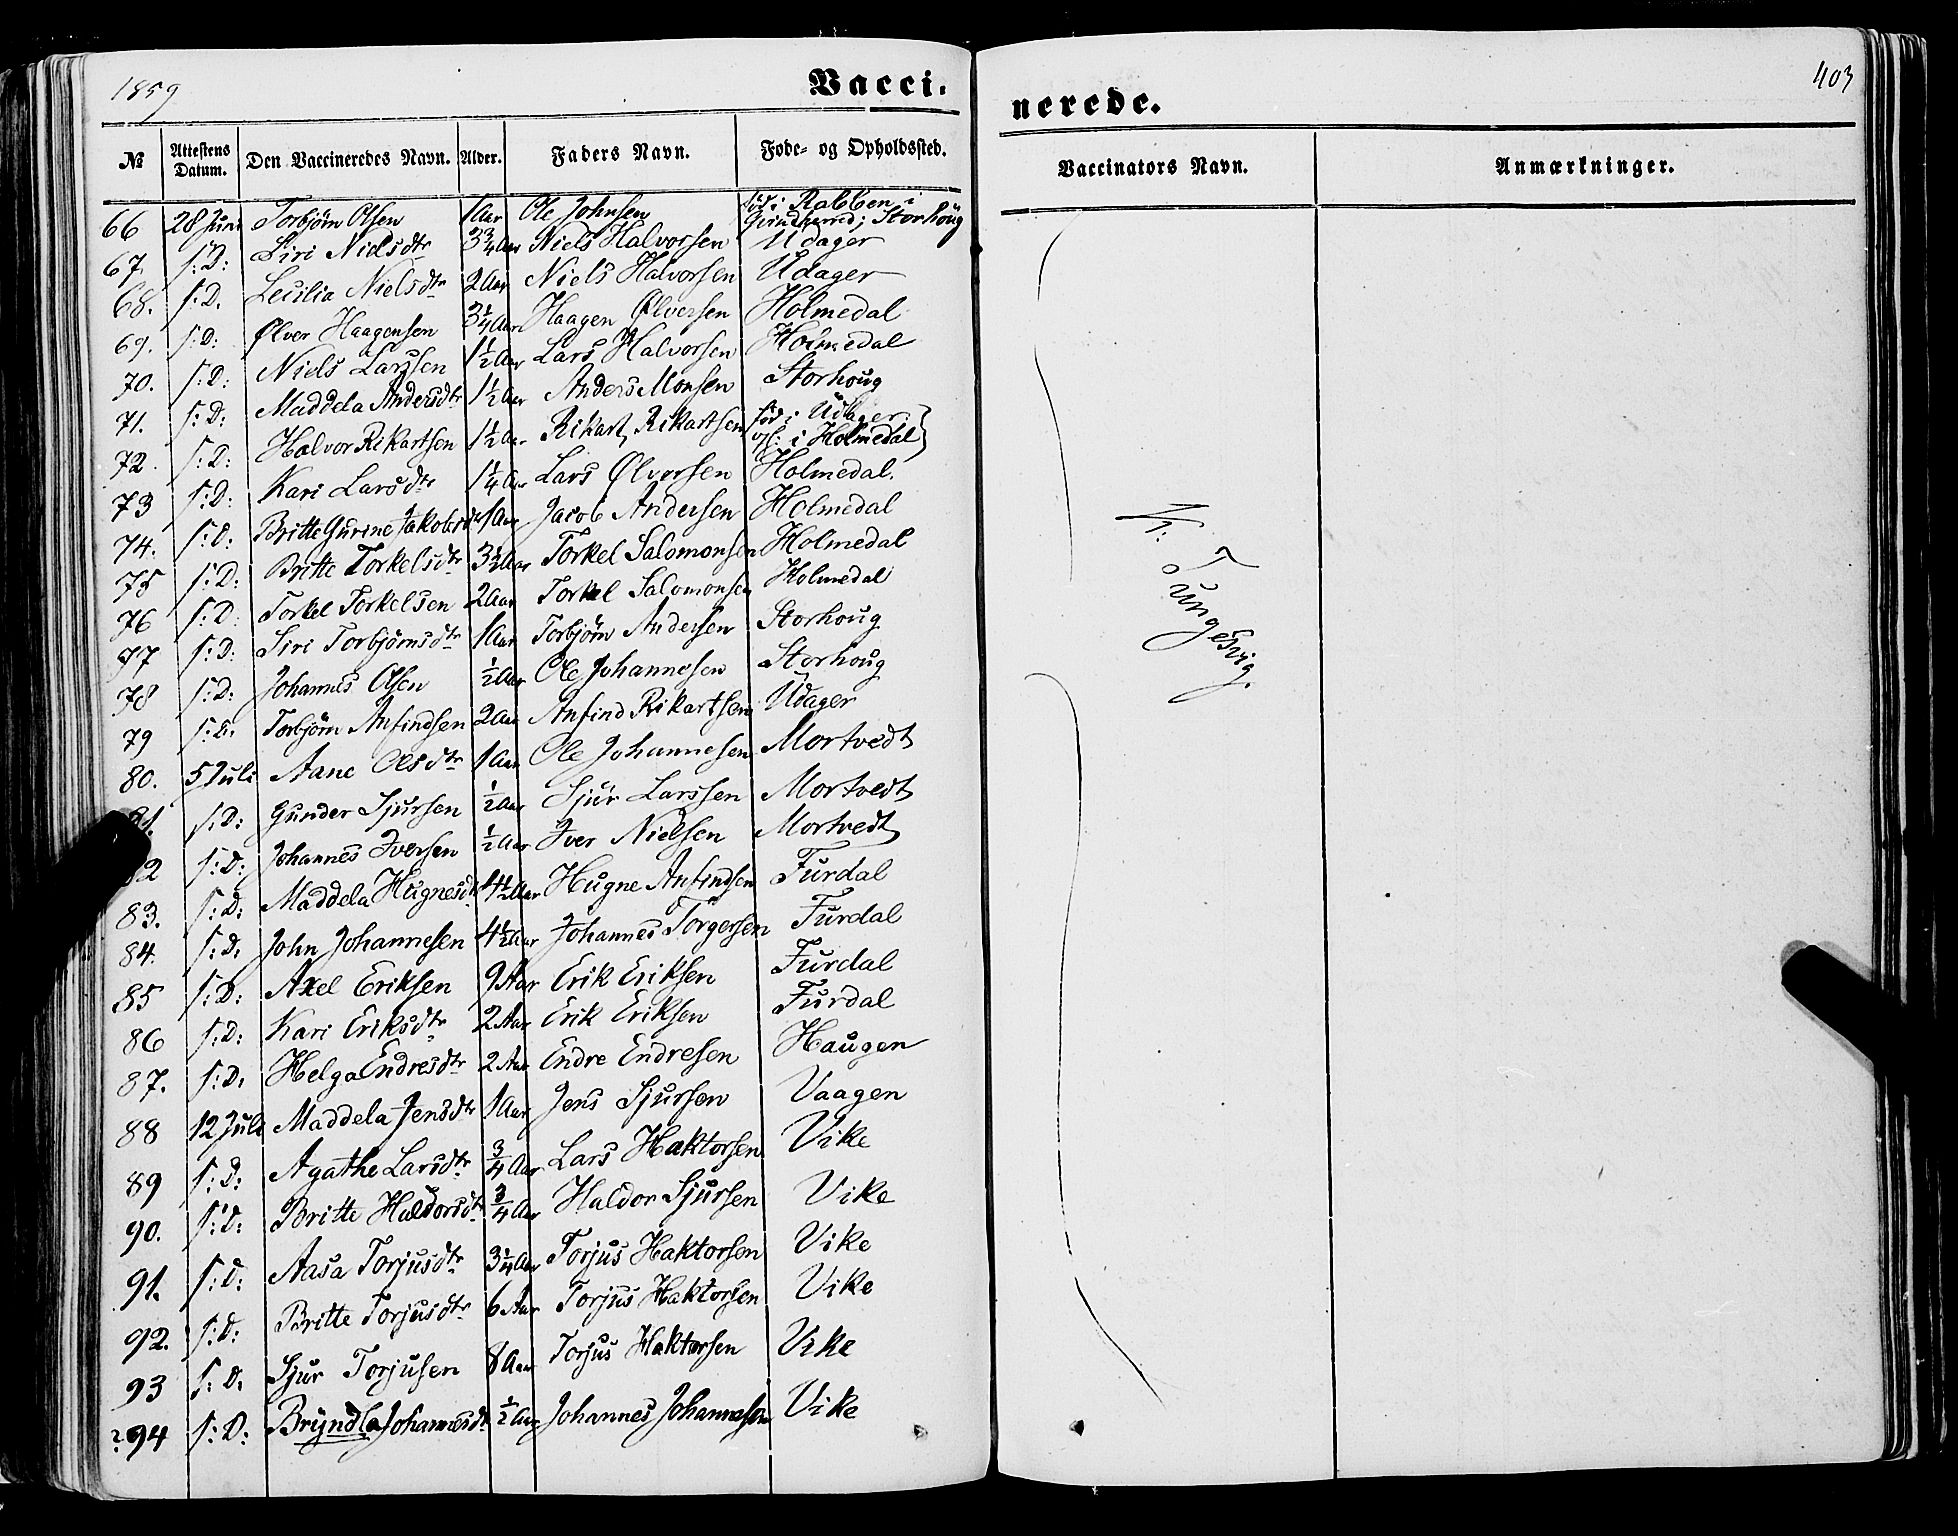 1859
Vacci-
nerede.
403
№ Attestens Datum. Den Vaccineredes Navn. Alder. Faders Navn. Føde- og Opholdssted. Vaccinators Navn. Anmærkninger.
66 28 Juni Torbjørn Olsen 1 Aar Ole Johnsen Rabben i Storhoug
67 s: D: Siri Nielsdtr 3 3/4 Aar Niels Halvorsen Udager
68. s: D. Cecilia Nielsdtr 2 Aar Niels Halvorsen Udager
69. s: D: Ølver Haagensen 3 1/4 Aar Haagen Ølversen Holmedal
70. s: D: Niels Larssen 1 1/2 Aar Lars Halvorsen Holmedal
71. s: D: Maddela Andersdtr 1 1/2 Aar Anders Monsen Storhoug
72. s: D: Halvor Rikartsen 1 1/2 Aar Rikart Rikartsen född i Udager; opf: i Holmedal
73 s: D: Kari Larsdtr 1 1/4 Aar Lars Ølversen Holmedal.
74. s: D: Britte Gurine Jakobsdtr 1 Aar Jacob Andersen Holmedal
75 s: D: Britte Torkelsdtr 3 1/2 Aar Torkel Salomonsen Holmedal
76 s: D: Torkel Torkelsen 2 Aar Torkel Salomonsen Holmedal
77 s: D: Siri Torbjørnsdtr 1 Aar Torbjørn Andersen Storhoug
78 s: D: Johannes Olsen 1/2 Aar Ole Johannesen Storhoug
79 s: D. Torbjørn Anfindsen 2 Aar Anfind Rikartsen Udager
80. 5 Juli Aane Olsdtr 1 Aar Ole Johannesen Mortvedt
81. s: D: Gunder Sjursen 1/2 Aar Sjur Larssen Mortvedt
82 s: D: Johannes Iversen 1/2 Aar Iver Nielsen Mortvedt
83. s: D: Maddela Hugnesdtr 4 1/2 Aar Hugne Anfindsen Furdal
84. s: D. John Johannesen 4 1/2 Aar Johannes Torgersen Furdal
85 s: D: Axel Eriksen 9 Aar Erik Eriksen Furdal
86 s: D: Kari Eriksdtr 2 Aar Erik Eriksen Furdal
87. s: D. Helga Endresdtr 2 Aar Endre Endresen Haugen
88 12 Juli Maddela Jensdtr 1 Aar Jens Sjursen Vaagen
89 s: D: Agathe Larsdtr 3/4 Aar Lars Haktorsen Vike
90. s: D: Britte Haldorsdtr 3/4 Aar Haldor Sjursen Vike
91. s: D: Aasa Torjusdtr 3 1/4 Aar Torjus Haktorsen Vike
92. s: D: Britte Torjusdtr 6 Aar Torjus Haktorsen Vike
93 s: D. Sjur Torjusen 8 Aar Torjus Haktorsen Vike
94 s: D: Bryndla Johannesdtr 1/2 Aar Johannes Johannesen Vike
K. Tungesvig.